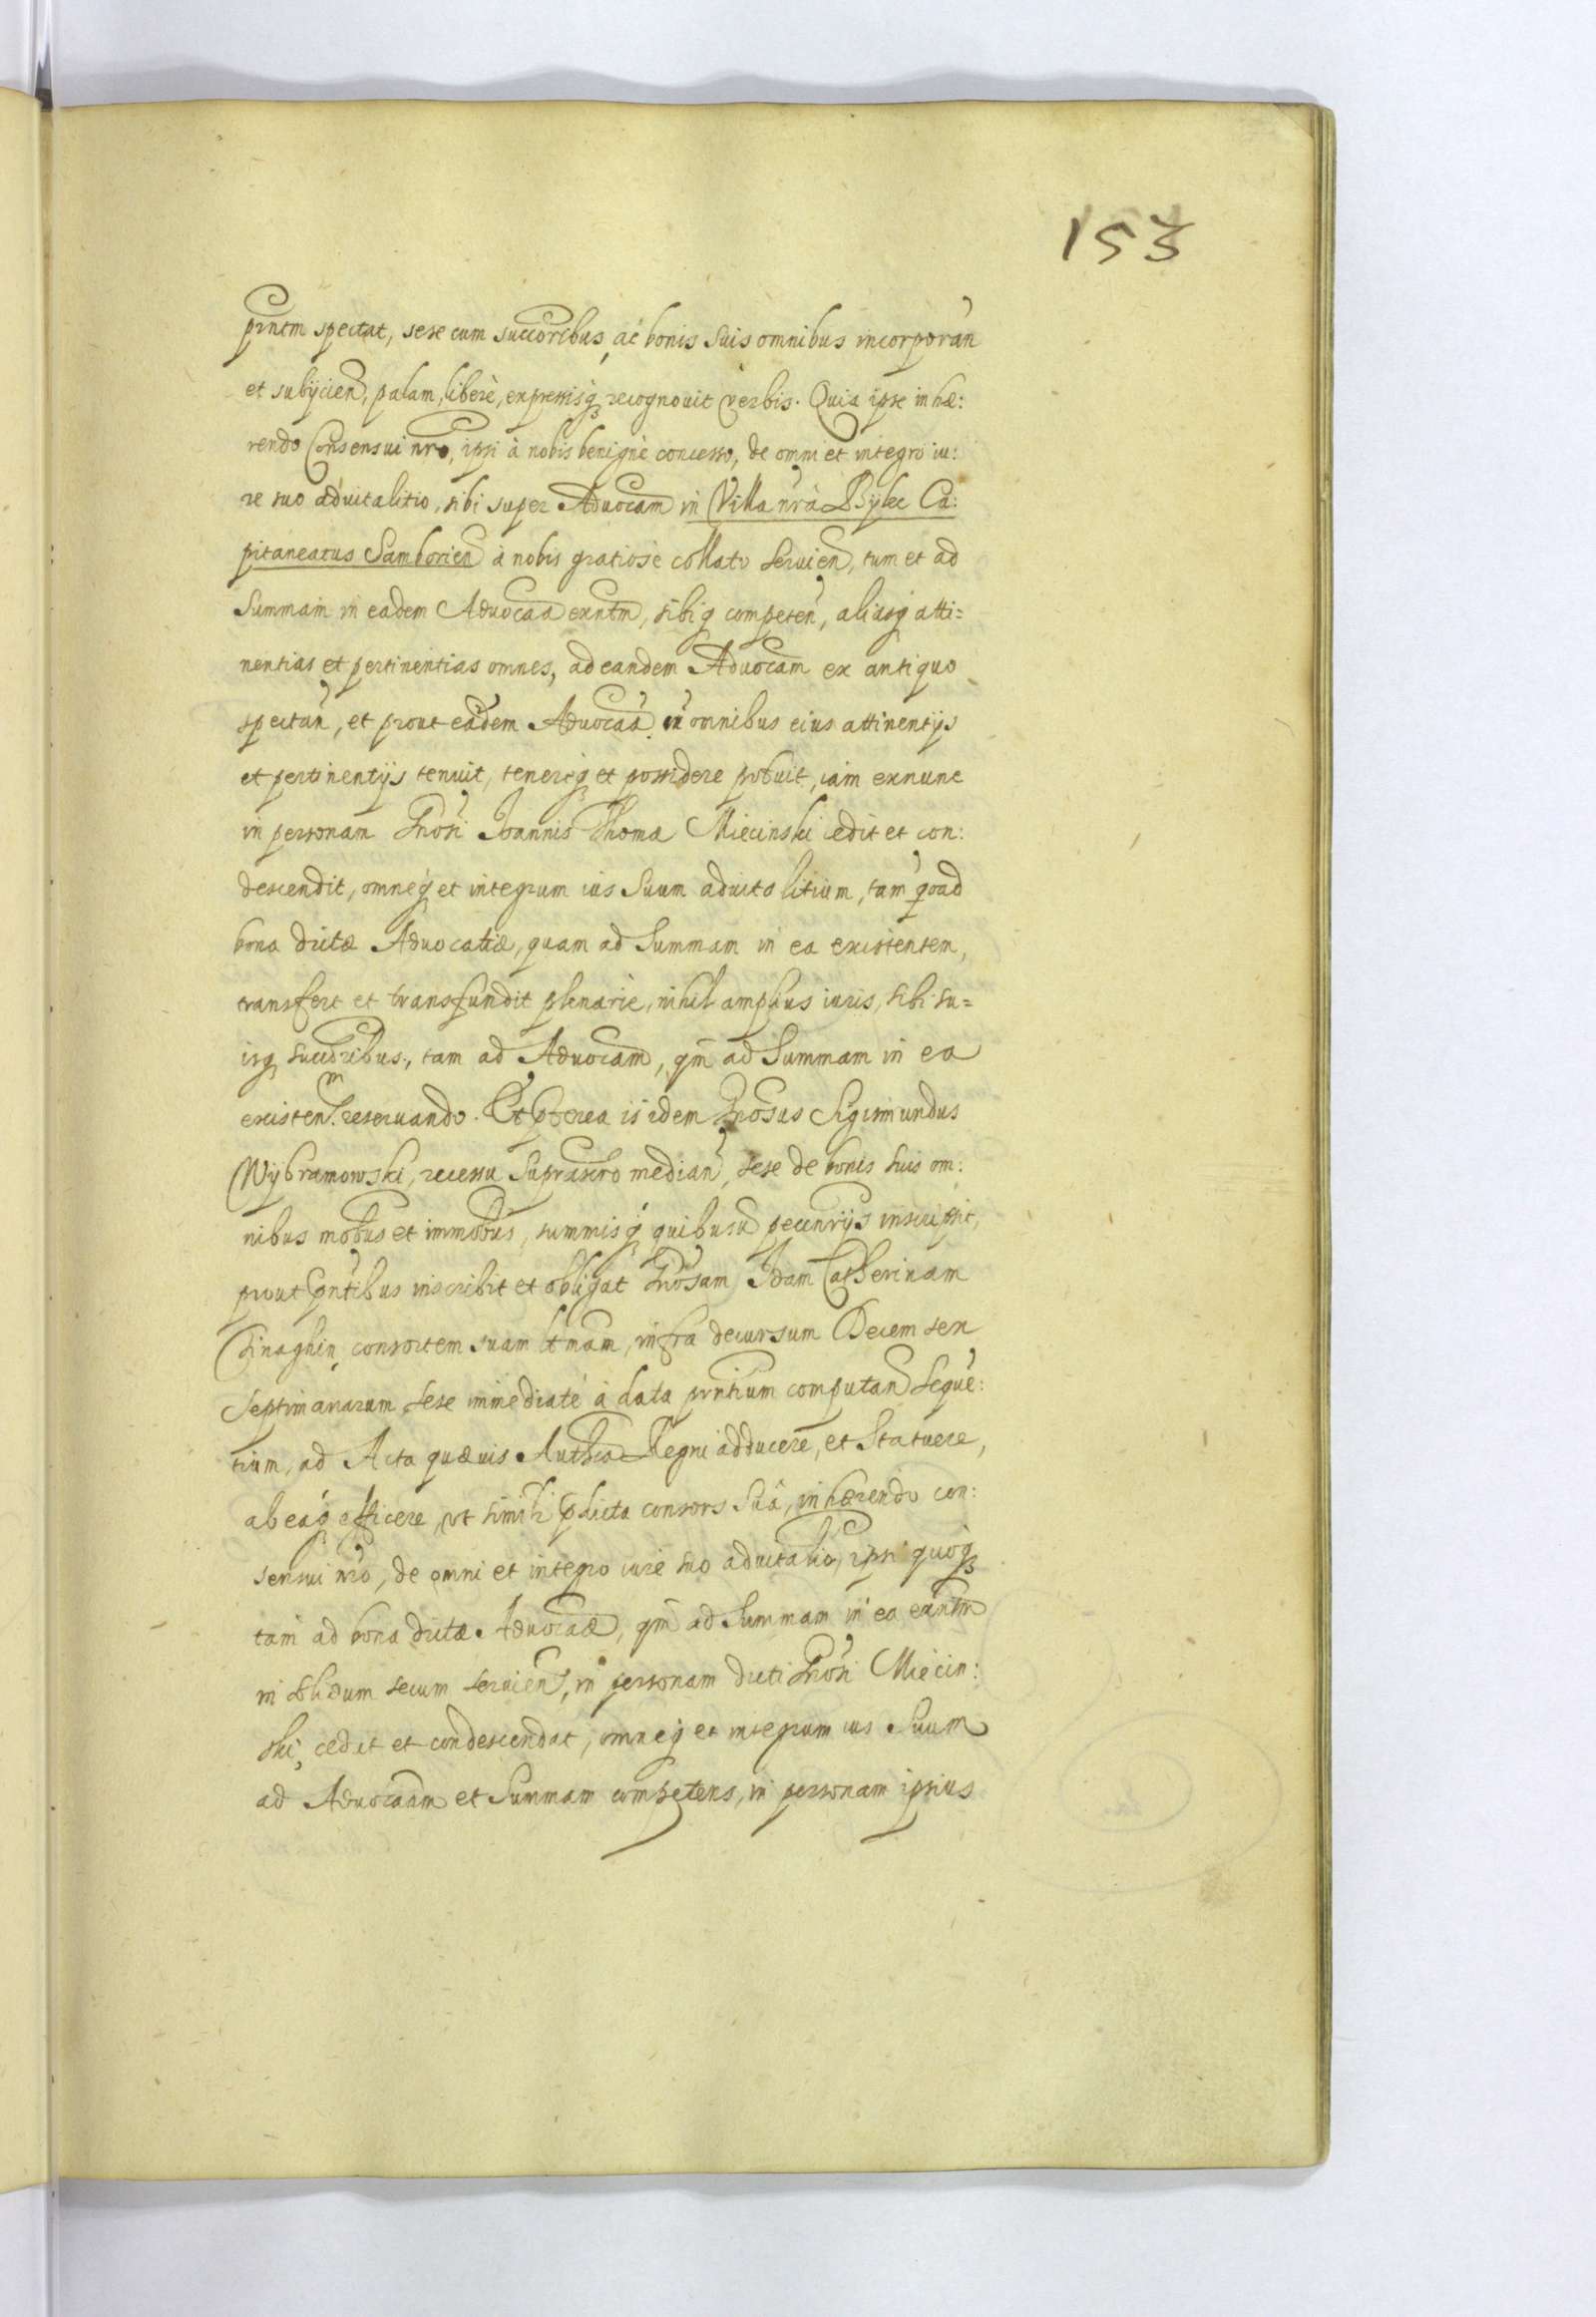 153
prntm spectat, sese cum succoribus, ac bonis suis omnibus incorporan
et subijcien, palam, liberè, expressisq recognouit verbis. Quia ipse inhæ:
rendo Consensui nro, ipsi à nobis benignè concesso, de omni et integro iu:
re suo aduitalitio, sibi super Aduocam in Villa nra Bÿlec Ca:
pitaneatus Samborien à nobis gratiosè collato seruien, tum et ad
Summam in eadem Aduocaa exntm, sibiq competen, aliasq atti=
nentias et pertinentias omnes, ad eandem Aduocam ex antiquo
spectan, et prout eadem Aduocaa in omnibus eius attinentijs
et pertinentijs tenuit, tenereq et possidere potuit, iam exnunc
in personam Gnosi Joannis Thoma Miecinski cedit et con:
descendit, omneq et integrum ius Suum aduitalitium, tam quoad
bona dictæ Aduocatiæ, quam ad Summam in ea existentem,
transfert et transfundit plenariè, nihil amplius iuris, sibi su=
isq succoribus, tam ad Aduocam, qm ad Summam in ea
existen. reseruando. Et ptterea is idem Gnosus Sigismundus
Wybramowski, recessu suprascro median, sese de bonis suis om:
nibus mobus et immobus, summisq quibusu pecunrijs inscripsit,
prout pntibus inscribit et obligat Gnosam Idam Catherinam
Dinaghin, consortem suam ltmam, infra decursum Decem sex
Septimanarum sese immediatè à data prntium computan Seque:
tium, ad Acta quæuis Authca Regni adducere, et Statuere,
ab eaq efficere, vt simili pdicta consors Sua, inhærendo con:
sensui nro, de omni et integro iure suo aduitalio, ipsi quoq
tam ad bona dictæ Aduocaæ, qm ad Summam in ea exntm
in solidum secum seruien, in personam dicti Gnosi Miecin:
ski, cedat et condescendat, omneq et integrum ius Suum
ad Aduocaam et Summam competens, in personam ipsius